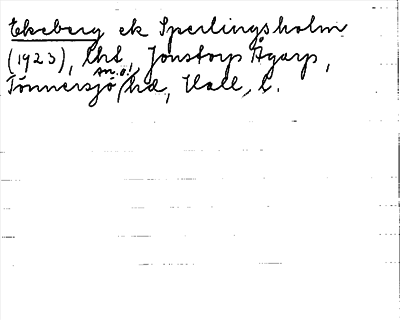 Ekeberg ek Sperlingsholm
(1923), lht, Jonstorp Ågarp,
Tönnersjö hd, Hall. l.